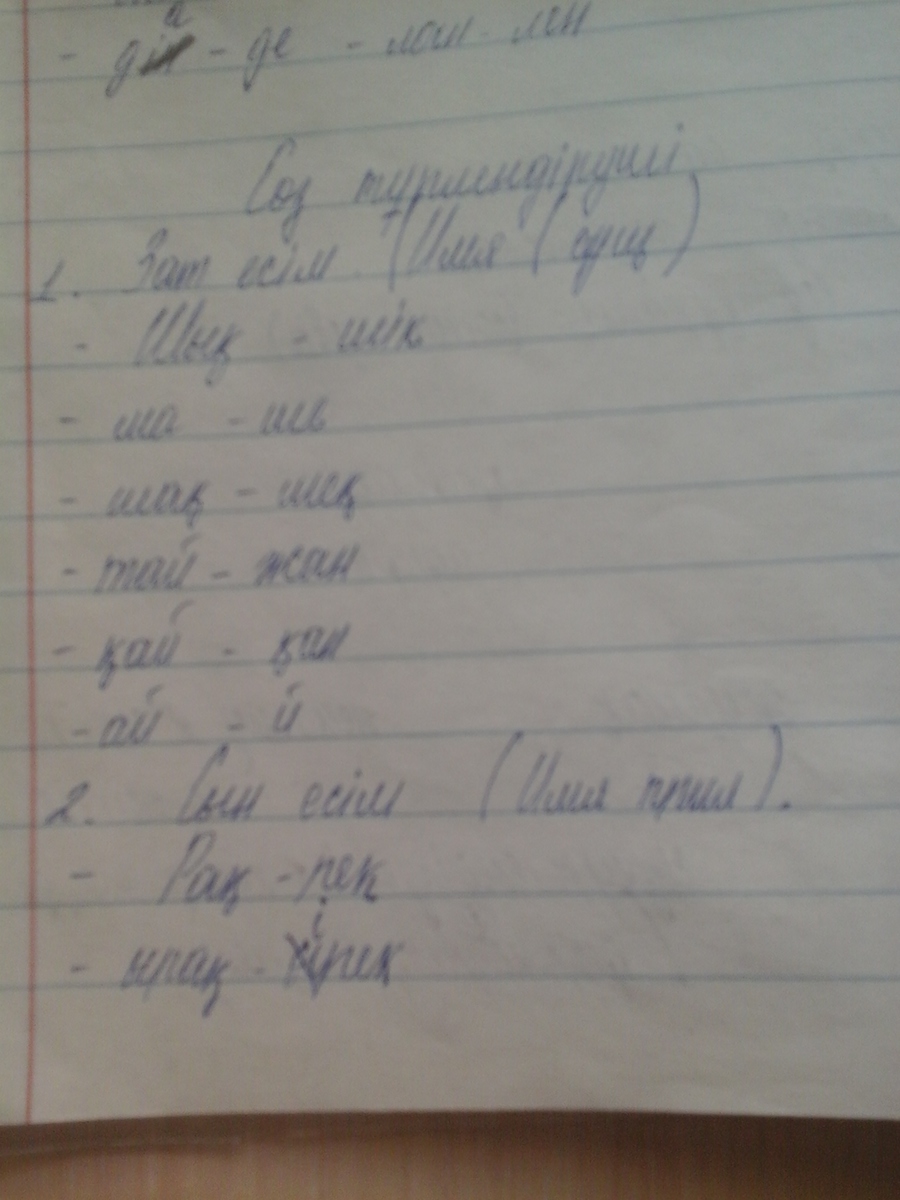 - да - де - лаи - лен
Соз түрлендіруші
1. Зат есім (Имя (сущ)
- Шық - шік
- ша - ше
- шақ - шек
- тай - жан
- қай - қан
- ай - й
2. Сын есім (Имя прил).
- Рақ - рек
- ырақ - ірек